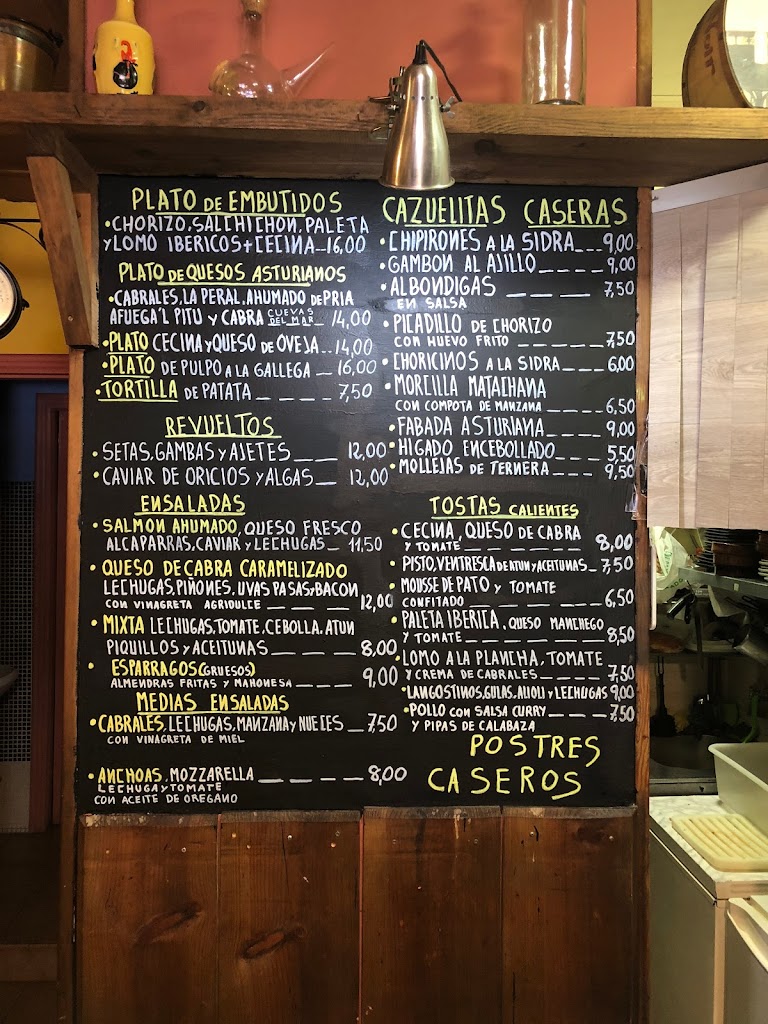 PLATO DE EMBUTIDOS
• CHORIZO, SALCHICHON, PALETA
Y LOMO IBERICOS + CECINA _ 16,00
PLATO DE QUESOS ASTURIANOS
• CABRALES, LA PERAL, AHUMADO DE PRIA
AFUEGA'L PITU Y CABRA CUEVAS DEL MAR _ 14,00
• PLATO CECINA Y QUESO DE OVEJA _ _ 14,00
• PLATO DE PULPO A LA GALLEGA _ _ 16,00
• TORTILLA DE PATATA _ _ _ _ 7,50
REVUELTOS
• SETAS, GAMBAS Y AJETES _ _ _ 12,00
• CAVIAR DE ORICIOS Y ALGAS _ _ 12,00
ENSALADAS
• SALMON AHUMADO, QUESO FRESCO
ALCAPARRAS, CAVIAR Y LECHUGAS _ 11,50
• QUESO DE CABRA CARAMELIZADO
LECHUGAS, PIÑONES, UVAS PASAS Y BACON
CON VINAGRETA AGRIDULCE _ _ _ _ 12,00
• MIXTA LECHUGAS, TOMATE, CEBOLLA, ATUN
PIQUILLOS Y ACEITUNAS _ _ _ _ 8,00
• ESPARRAGOS (GRUESOS)
ALMENDRAS FRITAS Y MAHONESA _ _ _ 9,00
MEDIAS ENSALADAS
• CABRALES, LECHUGAS, MANZANA Y NUECES _ 7,50
CON VINAGRETA DE MIEL
• ANCHOAS, MOZZARELLA _ _ _ _ 8,00
LECHUGA Y TOMATE
CON ACEITE DE OREGANO
CAZUELITAS CASERAS
• CHIPIRONES A LA SIDRA _ _ _ 9,00
• GAMBON AL AJILLO _ _ _ _ 9,00
• ALBONDIGAS _ _ _ _ 7,50
EN SALSA
• PICADILLO DE CHORIZO
CON HUEVO FRITO _ _ _ _ 7,50
• CHORICINOS A LA SIDRA _ _ _ 6,00
• MORCILLA MATACHANA
CON COMPOTA DE MANZANA _ _ _ _ 6,50
• FABADA ASTURIANA _ _ _ _ 9,00
• HIGADO ENCEBOLLADO _ _ _ _ 5,50
• MOLLEJAS DE TERNERA _ _ _ _ 9,50
TOSTAS CALIENTES
• CECINA, QUESO DE CABRA
Y TOMATE _ _ _ _ _ _ 8,00
• PISTO, VENTRESCA DE ATUN Y ACEITUNAS _ 7,50
• MOUSSE DE PATO Y TOMATE
CONFITADO _ _ _ _ _ 6,50
• PALETA IBERICA, QUESO MANCHEGO
Y TOMATE _ _ _ _ _ _ 8,50
• LOMO A LA PLANCHA, TOMATE
Y CREMA DE CABRALES _ _ _ _ 7,50
• LANGOSTINOS, GULAS, ALIOLI Y LECHUGAS 9,00
• POLLO CON SALSA CURRY _ _ _ _ 7,50
Y PIPAS DE CALABAZA
POSTRES
CASEROS